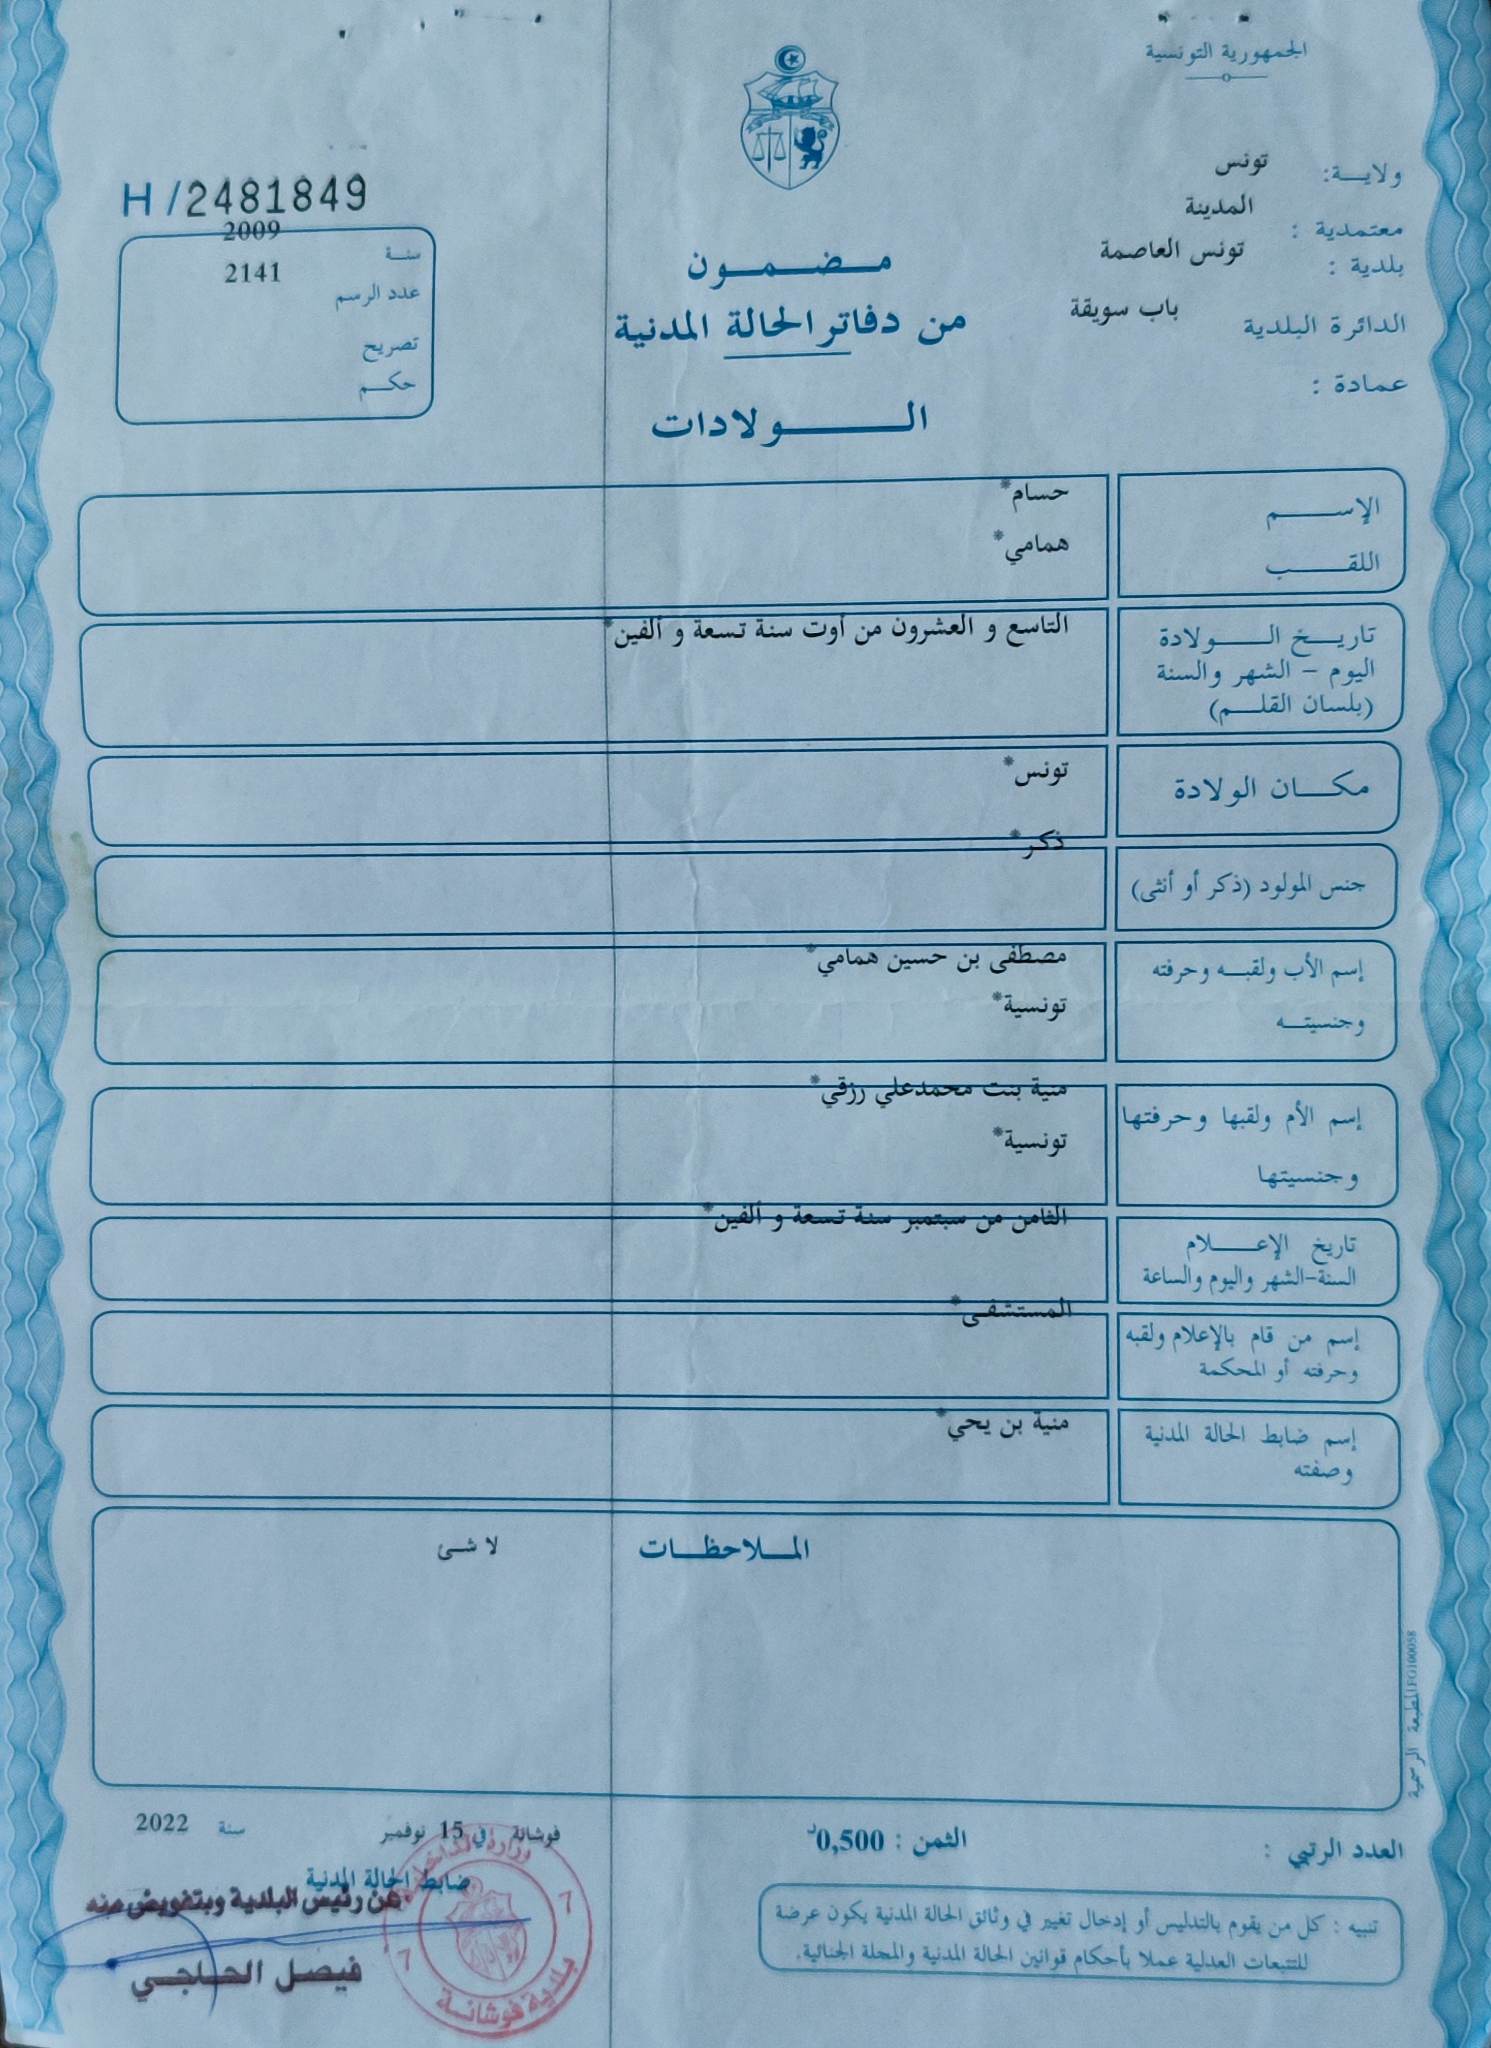 الجمهورية التونسية
ولاية: تونس
معتمدية : المدينة
بلدية : تونس العاصمة
الدائرة البلدية باب سويقة
عمادة :
H/2481849
سنة 2009
عدد الرسم 2141
تصريح
حكم
مضمون
من دفاتر الحالة المدنية
الولادات
الإسم حسام*
اللقب همامي*
تاريخ الولادة التاسع و العشرون من أوت سنة تسعة و ألفين*
اليوم - الشهر والسنة
(بلسان القلم)
مكان الولادة تونس*
جنس المولود (ذكر أو أنثى) ذكر*
إسم الأب ولقبه وحرفته مصطفى بن حسين همامي*
وجنسيته تونسية*
إسم الأم ولقبها وحرفتها منية بنت محمدعلي رزقي*
وجنسيتها تونسية*
تاريخ الإعلام الثامن من سبتمبر سنة تسعة و ألفين*
السنة-الشهر واليوم والساعة
إسم من قام بالإعلام ولقبه المستشفى*
وحرفته أو المحكمة
إسم ضابط الحالة المدنية منية بن يحي*
وصفته
الملاحظات لا شئ
المطبعة الرسمية FG100058
العدد الرتبي :
الثمن : 0,500د
فوشانة في 15 نوفمبر سنة 2022
ضابط الحالة المدنية
عن رئيس البلدية وبتفويض منه
فيصل الحاجي
وزارة الداخلية
7 7
بلدية فوشانة
تنبيه : كل من يقوم بالتدليس أو إدخال تغيير في وثائق الحالة المدنية يكون عرضة
للتتبعات العدلية عملا بأحكام قوانين الحالة المدنية والمجلة الجنائية.